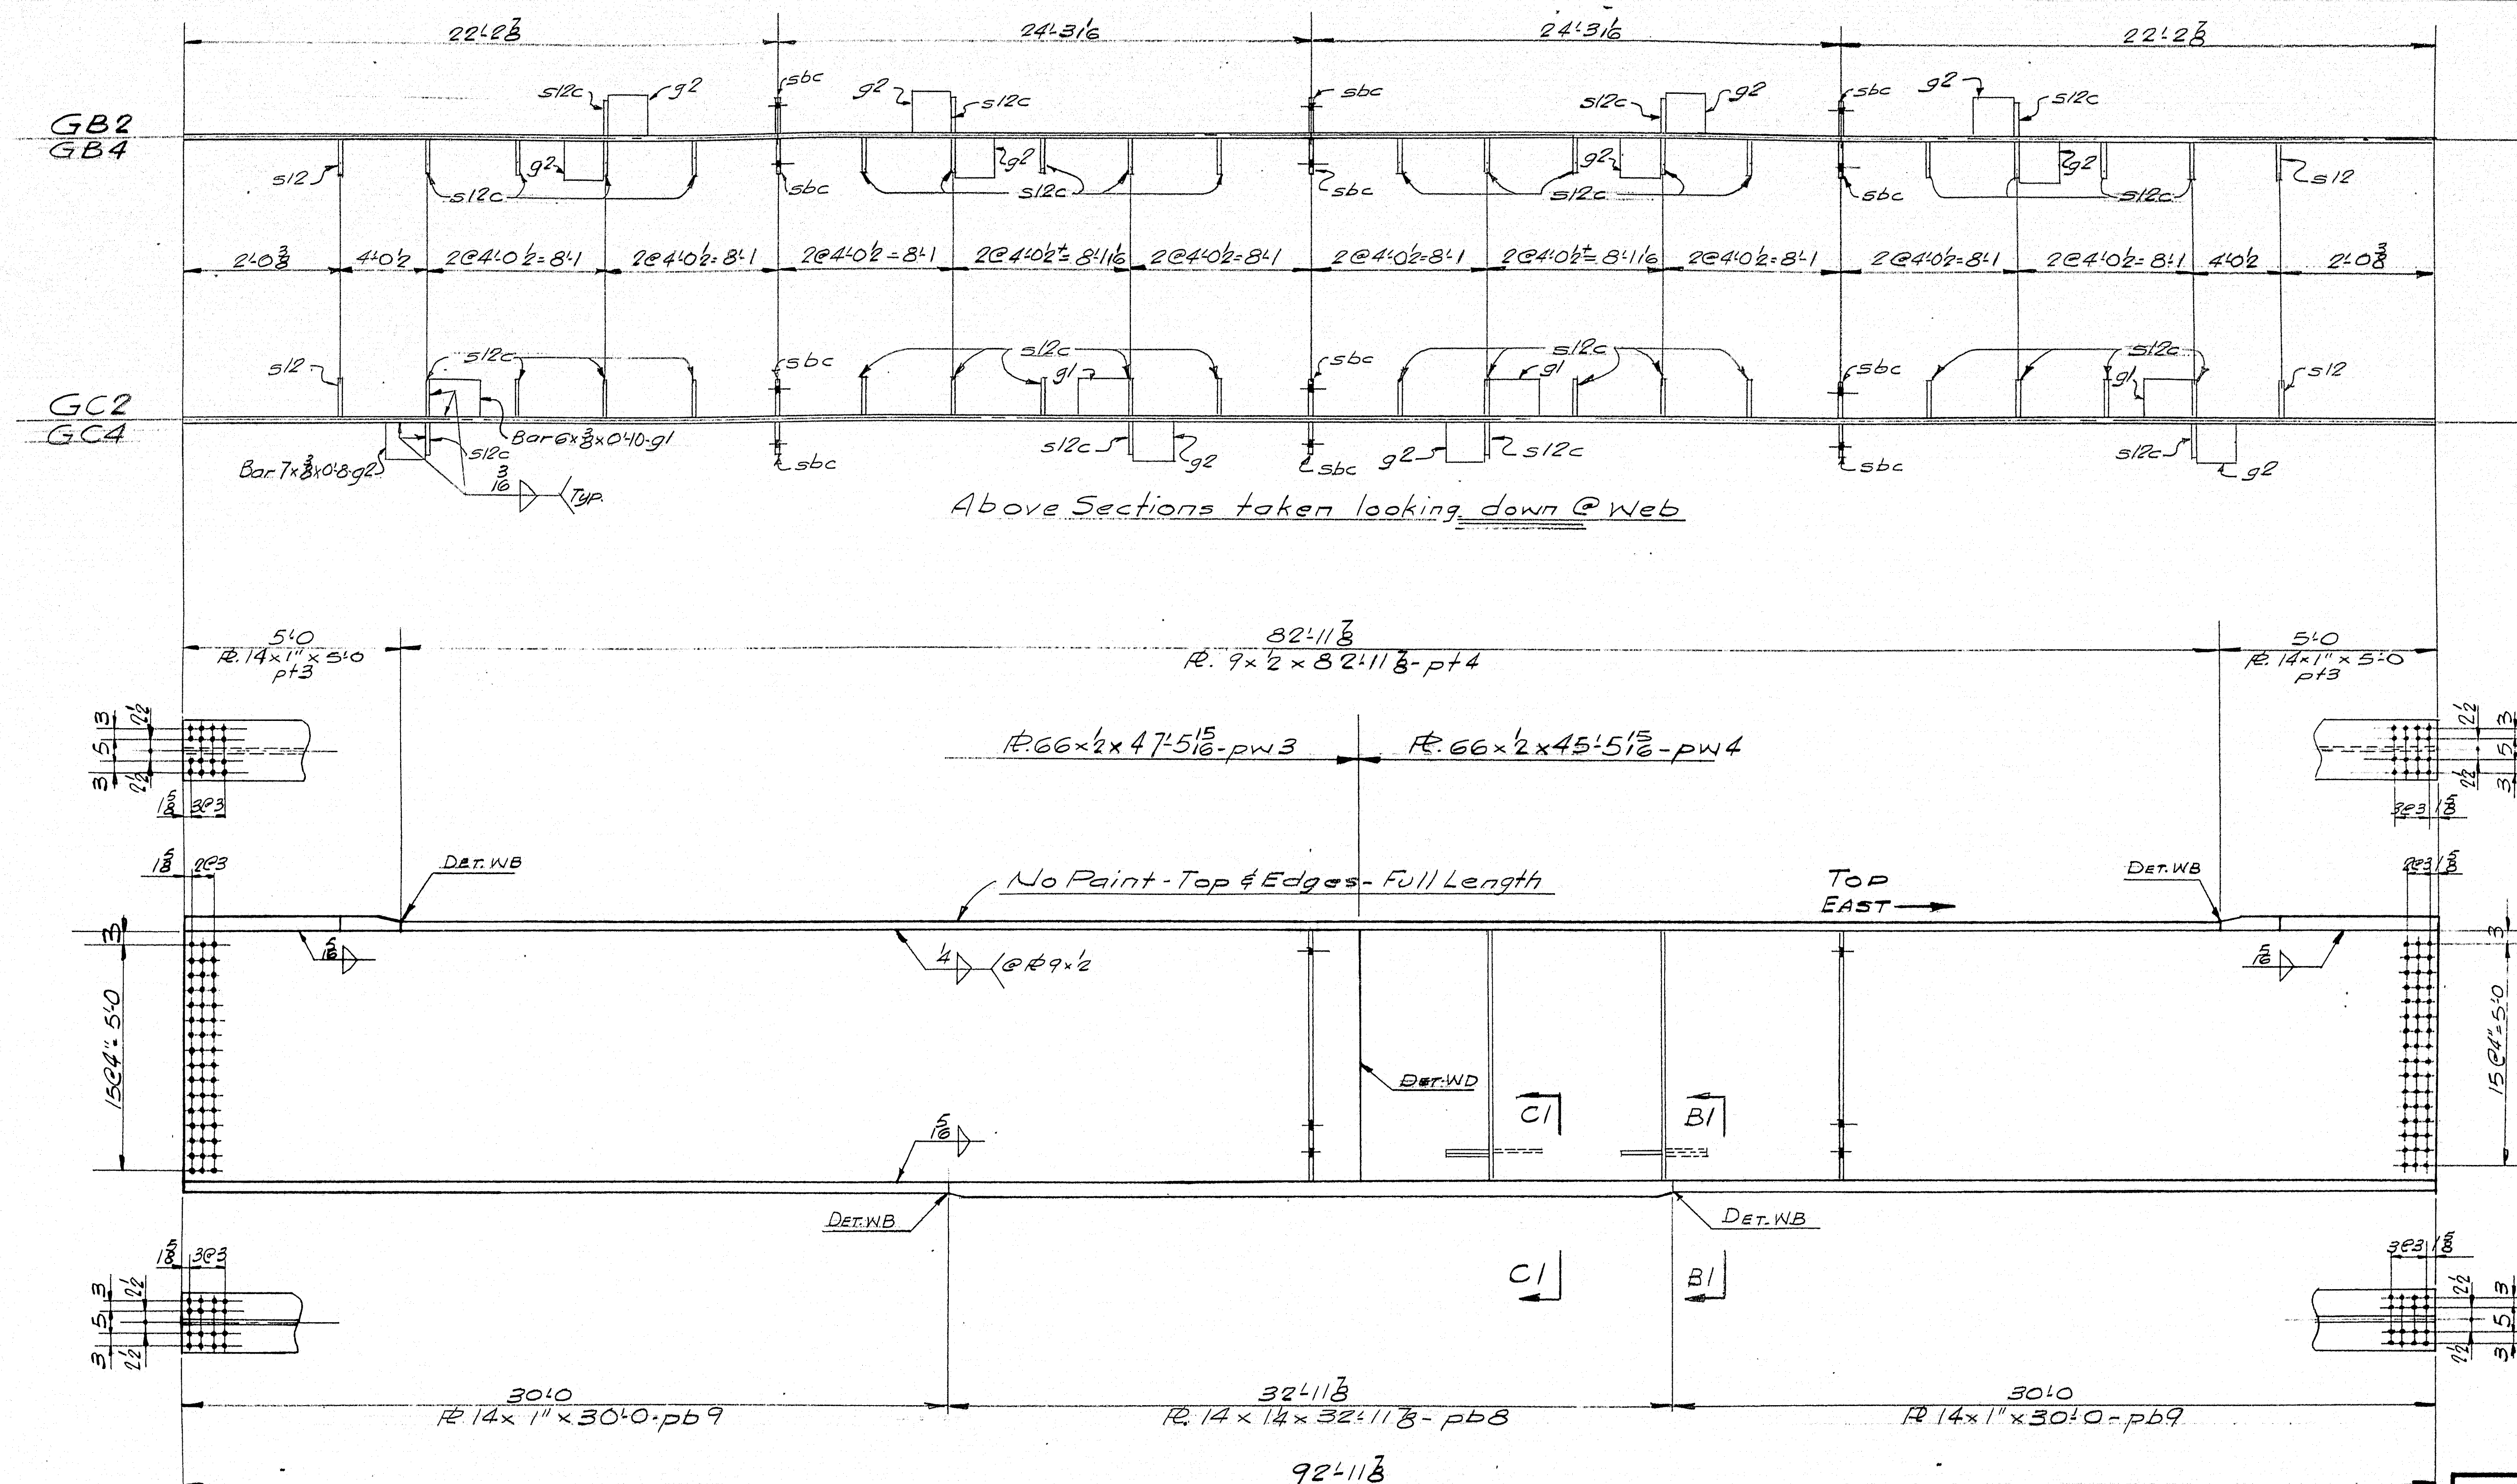 22'-2 7/8
24'-3 1/16
24'-3 1/16
22'-2 7/8
s12c g2 sbc g2 s12c sbc s12c g2 sbc g2 s12c
GB2
GB4
s12 s12c g2 sbc g2 s12c sbc g2 s12c sbc g2 s12c s12
2'-0 3/8 4'-0 1/2 2@4'-0 1/2=8'-1 2@4'-0 1/2=8'-1 2@4'-0 1/2=8'-1 2@4'-0 1/2±=8'-1 1/16 2@4'-0 1/2=8'-1 2@4'-0 1/2=8'-1 2@4'-0 1/2±=8'-1 1/16 2@4'-0 1/2=8'-1 2@4'-0 1/2=8'-1 2@4'-0 1/2=8'-1 4'-0 1/2 2'-0 3/8
s12 s12c sbc s12c g1 sbc s12c g1 sbc s12c g1 s12
GC2
GC4
Bar 7x3/8x0'-8-g2 s12c Bar 6x3/8x0'-10-g1 sbc s12c g2 sbc g2 s12c sbc s12c g2
3/16 Typ.
Above Sections taken looking down @ Web
5'-0
PL. 14x1" x 5'-0
pt3
82'-11 7/8
PL. 9x1/2 x 82'-11 7/8-pt4
5'-0
PL. 14x1" x 5'-0
pt3
3 5 3 2 1/2 2 1/2
1 5/8 3@3
PL. 66x1/2x47'-5 15/16-pw3
PL. 66x1/2x45'-5 15/16-pw4
2 1/2 2 1/2 3 5 3
3@3 1 5/8
1 5/8 2@3
DET. WB
No Paint-Top & Edges-Full Length
TOP
EAST
DET. WB
2@3 1 5/8
3
5/16
1/4 @ PL 9x1/2
5/16
3
15@4"=5'-0
DET. WD
C1
B1
15@4"=5'-0
5/16
DET. WB
DET. WB
1 5/8 3@3
3 5 3 2 1/2 2 1/2
C1
B1
3@3 1 5/8
2 1/2 2 1/2 3 5 3
30'-0
PL 14x 1" x 30'-0-pb9
32'-11 7/8
PL. 14 x 1 1/4 x 32'-11 7/8-pb8
30'-0
PL 14x1" x 30'-0-pb9
92'-11 7/8